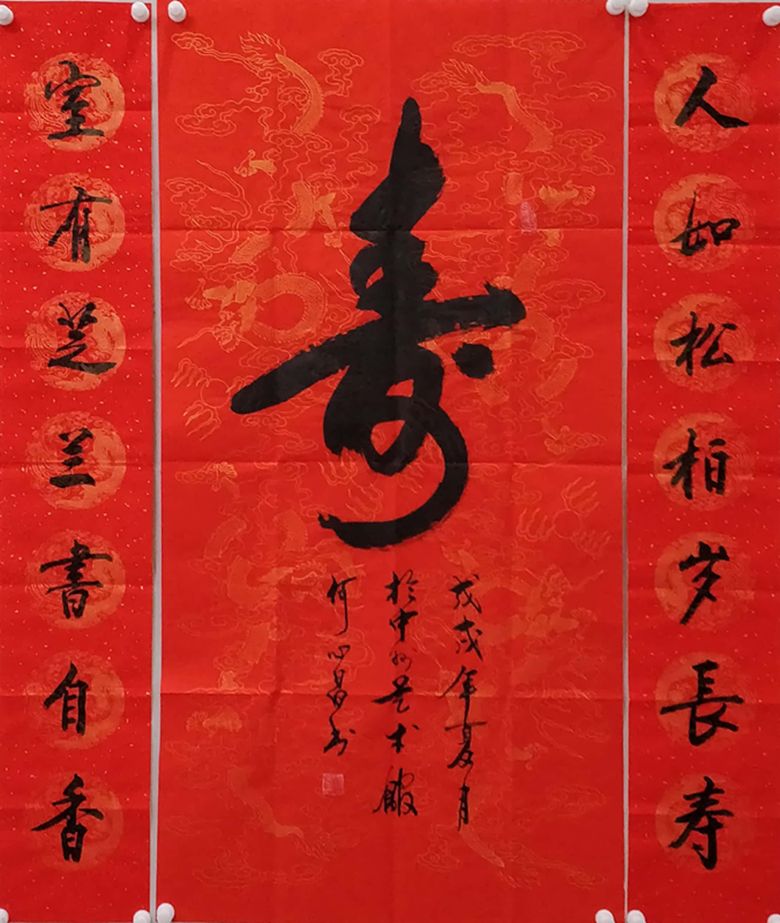 人如松柏岁長寿
寿
戊戌年夏月
於中州艺术館
何心昌书
室有芝兰書自香